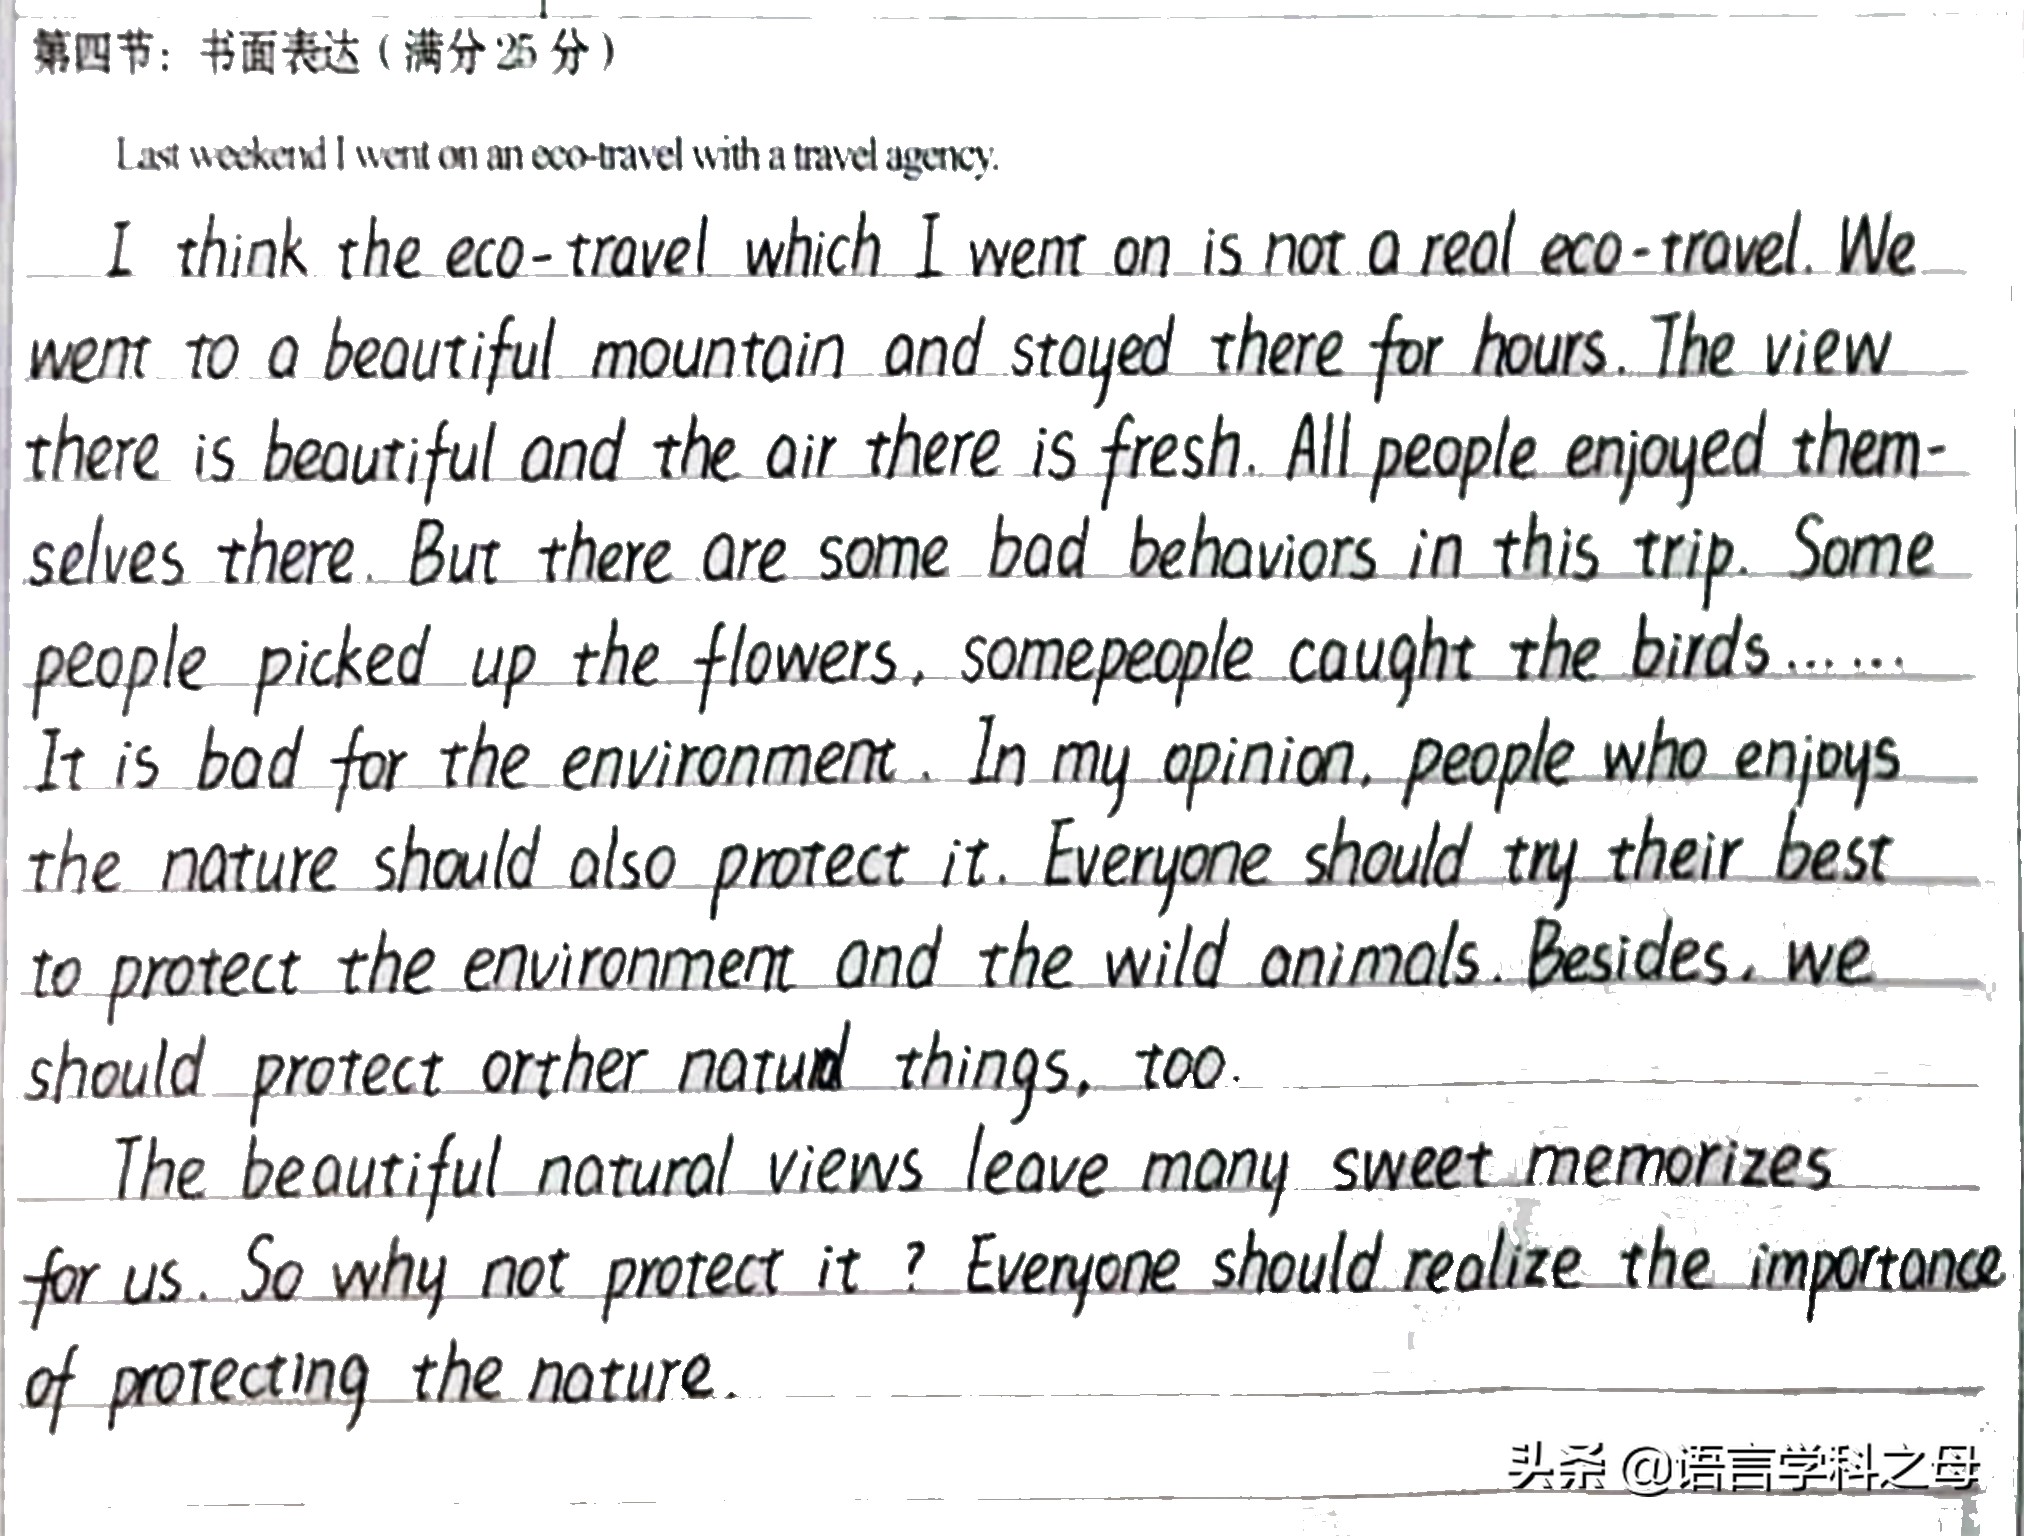 第四节：书面表达（满分25分）
Last weekend I went on an eco-travel with a travel agency.
I think the eco-travel which I went on is not a real eco-travel. We
went to a beautiful mountain and stayed there for hours. The view
there is beautiful and the air there is fresh. All people enjoyed them-
selves there. But there are some bad behaviors in this trip. Some
people picked up the flowers, somepeople caught the birds......
It is bad for the environment. In my opinion, people who enjoys
the nature should also protect it. Everyone should try their best
to protect the environment and the wild animals. Besides, we
should protect orther natural things, too.
The beautiful natural views leave many sweet memorizes
for us. So why not protect it? Everyone should realize the importance
of protecting the nature.
头条 @语言学科之母